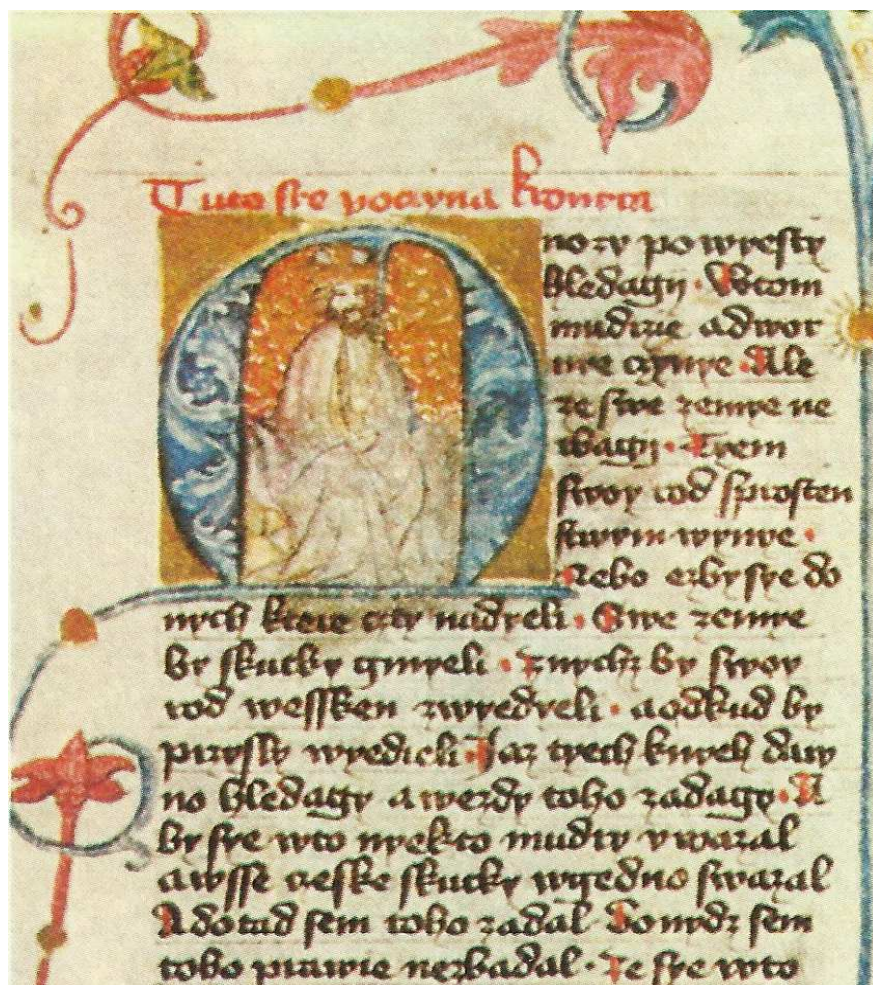 Tuto sie poczyna kronica
Mnozy powyesty
hledagij · Wtom
mudrzie adwor
nye czynye · Ale
ze swe zemye ne
tbagij · Tyem
swoy rod sprosten
stwym wynye ·
Nebo czbysye do
nych ktere czty nadyeli · Swe zemye
by skutky gmyeli · Znychz by swoy
rod wessken zwyedyeli · aodkud by
przyssly wyedieli · Jaz tyech knyeh daw
no hledagy awezdy toho zadagy · A
by sye wto nyekto mudry vwazal
awsse czeske skutky wgedno swazal
Adotud sem toho zadal Donydz sem
toho prawie nezbadal · Ze sye wto